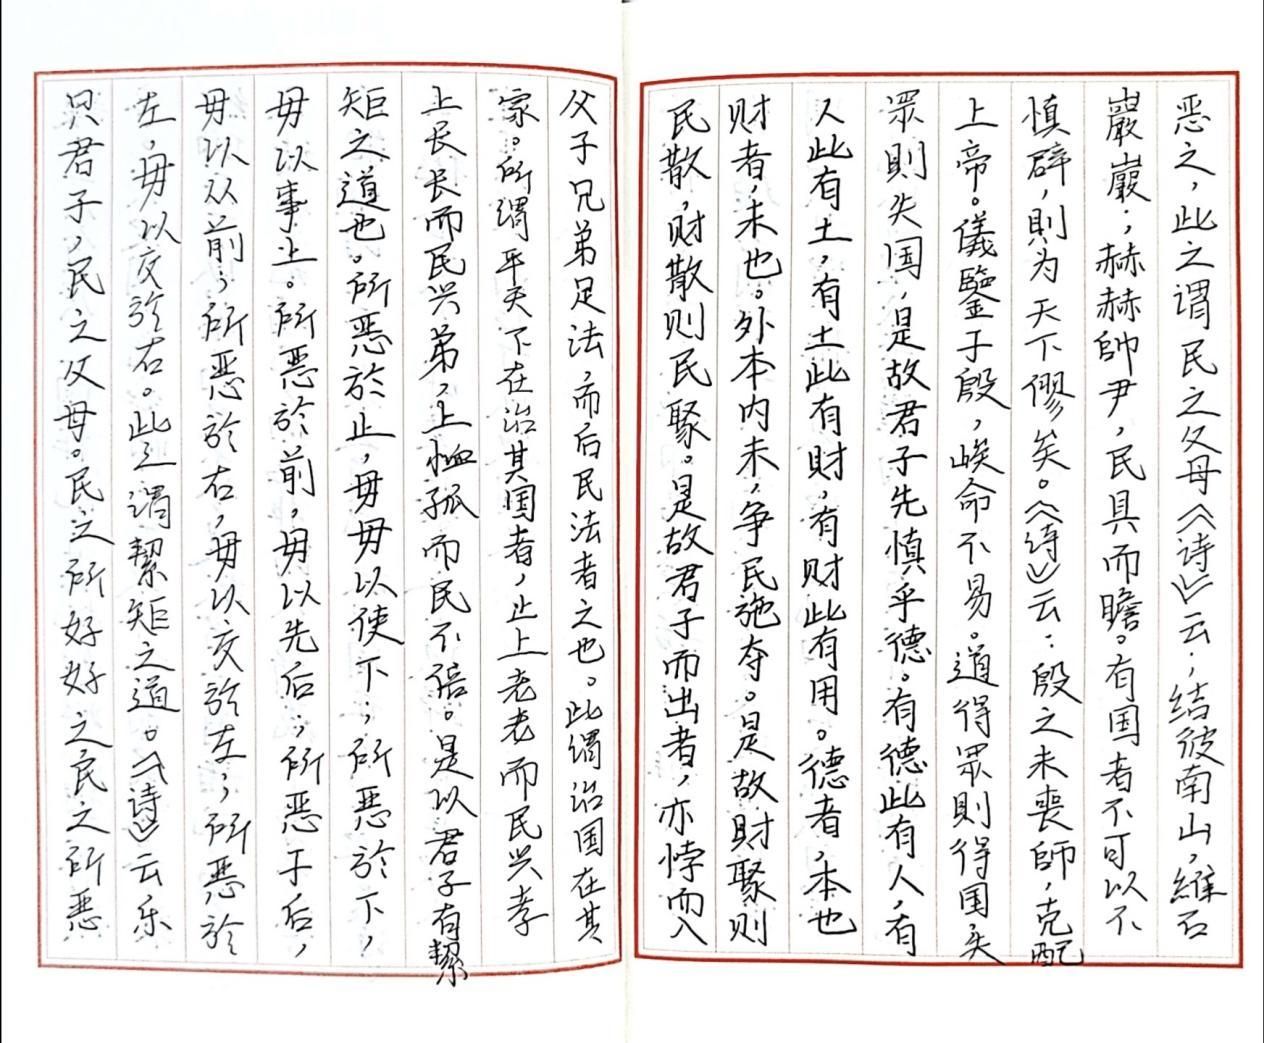 父子兄弟足法，而后民法者之也。此谓治国在其
家。所谓平天下在治其国者，止上老老而民兴孝
上长长而民兴弟，上恤孤而民不倍。是以君子有絜
矩之道也。所恶於止，毋毋以使下；所恶於下，
毋以事上。所恶於前，毋以先后；所恶于后，
毋以从前；所恶於右，毋以交於左；所恶於
左，毋以交於右。此之谓絜矩之道。《诗》云乐
只君子，民之父母。民之所好好之民之所恶
恶之，此之谓民之父母《诗》云：结彼南山，维石
巖巖；赫赫師尹，民具而瞻。有国者不可以不
慎辟，則为天下僇矣。《诗》云：殷之未丧師，克配
上帝。儀鑒于殷，峻命不易。道得眾則得国失
眾則失国，是故君子先慎乎德。有德此有人，有
人此有土，有土此有財，有财此有用。德者，本也
财者，末也。外本内末，争民施夺。是故财聚则
民散，财散则民聚。是故君子而出者，亦悖而入